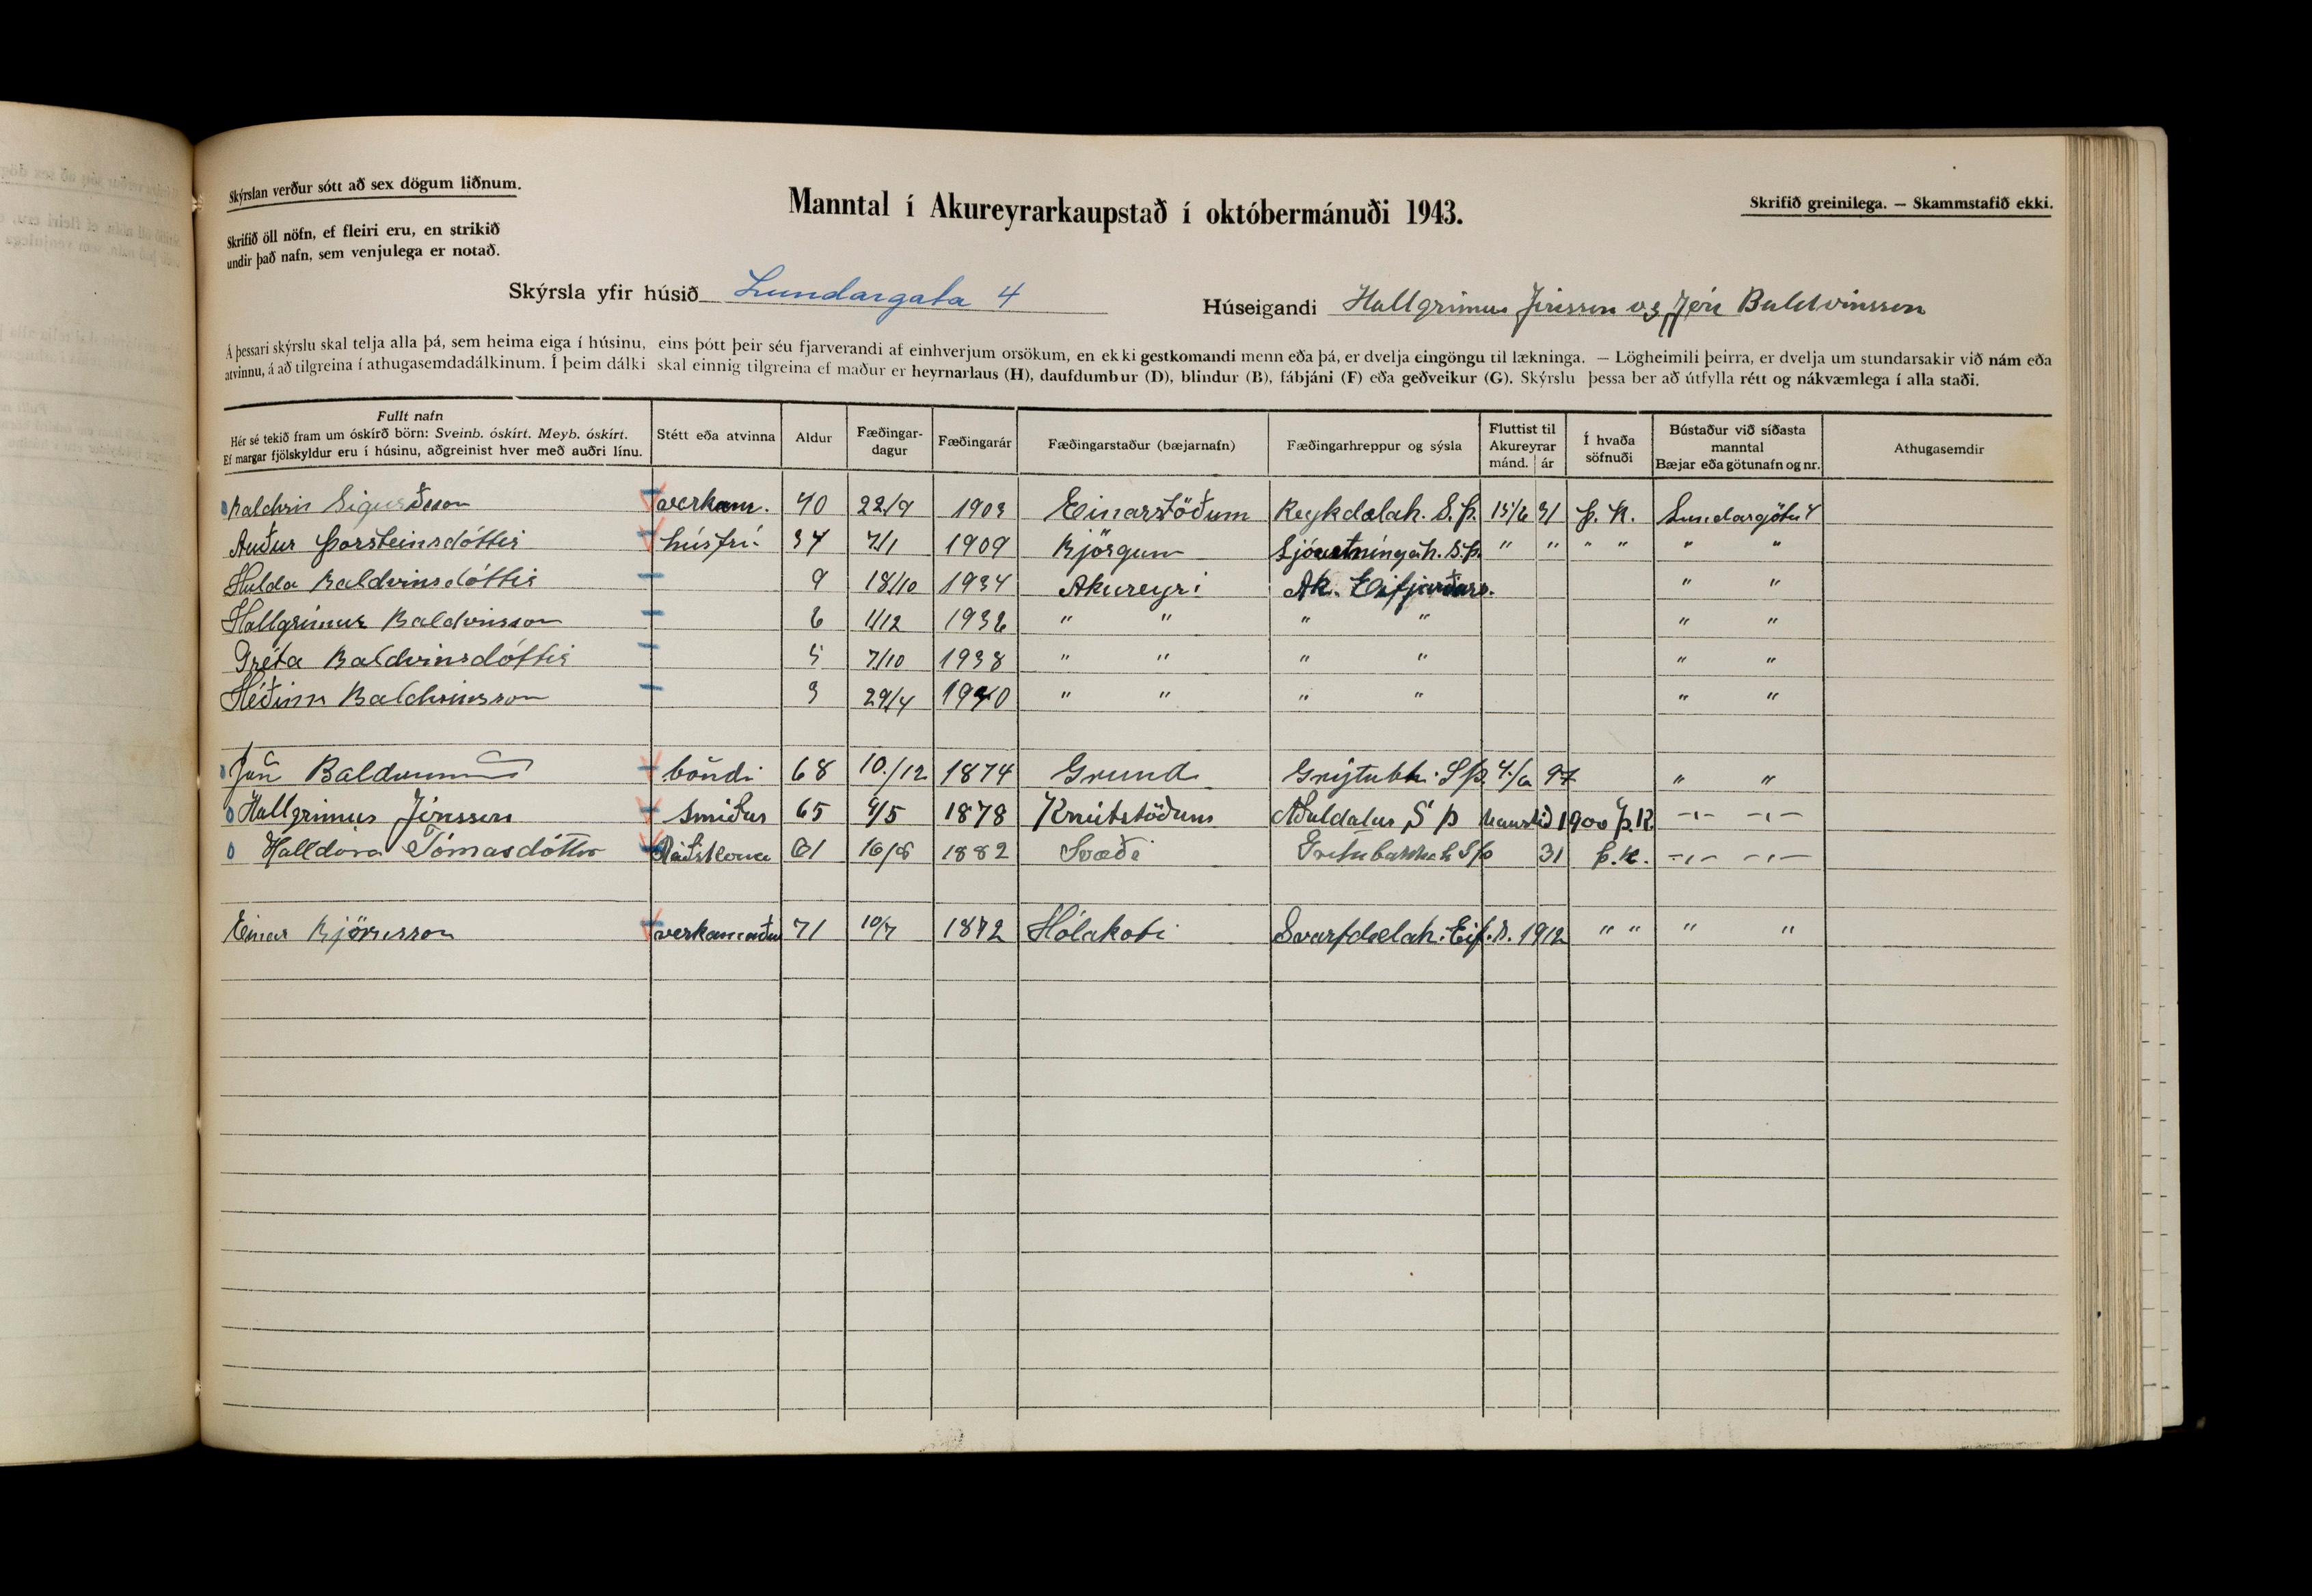 Skýrslan verður sótt að sex dögum liðnum.
Manntal í Akureyrarkaupstað í októbermánuði 1943.
Skrifið greinilega. — Skammstafið ekki.
Skrifið öll nöfn, ef fleiri eru, en strikið
undir það nafn, sem venjulega er notað.
Skýrsla yfir húsið Lundargata 4
Húseigandi Hallgrímur Jónsson og Jón Baldvinsson
Á þessari skýrslu skal telja alla þá, sem heima eiga í húsinu, eins þótt þeir séu fjarverandi af einhverjum orsökum, en ekki gestkomandi menn eða þá, er dvelja eingöngu til lækninga. — Lögheimili þeirra, er dvelja um stundarsakir við nám eða
atvinnu, á að tilgreina í athugasemdadálkinum. Í þeim dálki skal einnig tilgreina ef maður er heyrnarlaus (H), daufdumbur (D), blindur (B), fábjáni (F) eða geðveikur (G). Skýrslu þessa ber að útfylla rétt og nákvæmlega í alla staði.
Fullt nafn
Hér sé tekið fram um óskírð börn: Sveinb. óskírt. Meyb. óskírt.
Ef margar fjölskyldur eru í húsinu, aðgreinist hver með auðri línu.
Stétt eða atvinna
Aldur
Fæðingar-
dagur
Fæðingarár
Fæðingarstaður (bæjarnafn)
Fæðingarhreppur og sýsla
Fluttist til
Akureyrar
mánd. ár
Í hvaða
söfnuði
Bústaður við síðasta
manntal
Bæjar eða götunafn og nr.
Athugasemdir
Baldvin Sigurðsson verkam. 40 22/9 1903 Einarstöðum Reykdælah. S.Þ. 15/6 31 Þ. K. Lundargötu 4
Auður Þorsteinsdóttir húsfrú 34 7/1 1909 Björgum Ljósvetningah. S.Þ. " " " " " "
Hulda Baldvinsdóttir 9 18/10 1934 Akureyri Ak. Eyjfjarðars. " "
Hallgrímur Baldvinsson 6 1/12 1936 " " " " " "
Gréta Baldvinsdóttir 5 7/10 1938 " " " " " "
Héðinn Baldvinsson 3 29/4 1940 " " " " " "
Jón Baldvinsson bóndi 68 10./12 1874 Grund Grýtubh. S Þ. 4./6 97 " "
Hallgrímur Jónsson Smiður 65 4/5 1878 Knútstöðum Aðaldalur, S Þ haustið 1900 Þ.K. -"- -"-
Halldóra Tómasdóttir Ráðskona 61 16/8 1882 Svæði Grítubakkah S Þ 31 Þ.K. -"- -"-
Einar Björnsson verkamaður 71 10/7 1872 Hólakoti Svarfdælah. Eyf. s. 1912 " " " "